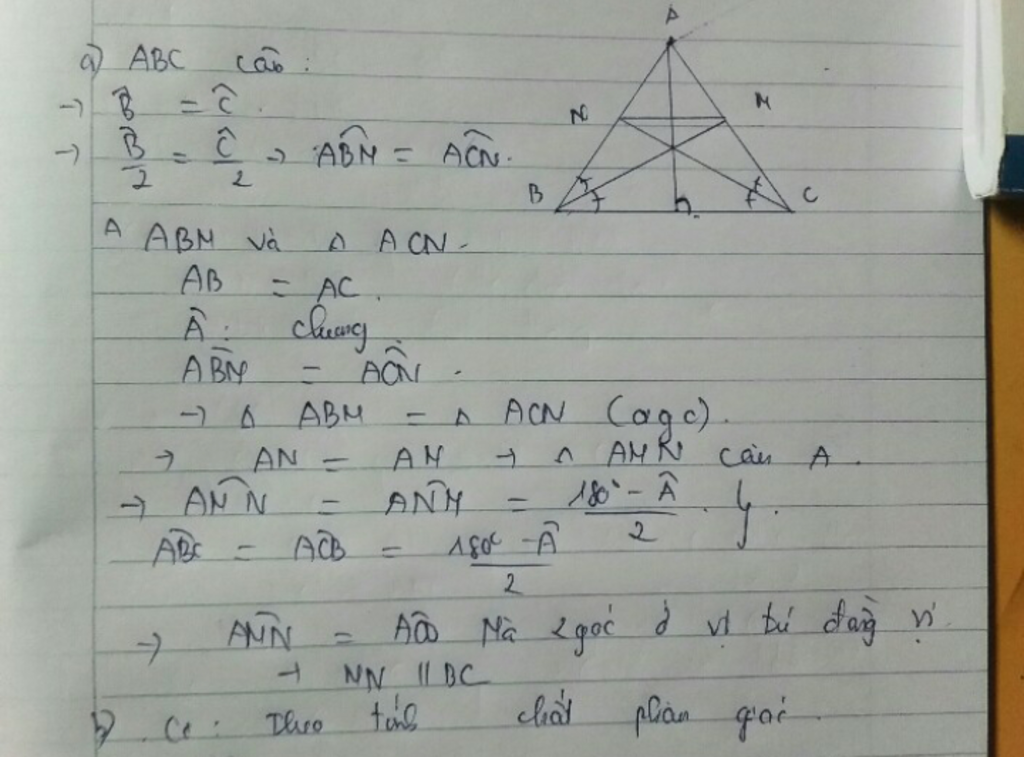 A
a) ABC cân :
N M
→ B̂ = Ĉ.
→ B̂/2 = Ĉ/2 → ABM̂ = ACN̂.
B C
Δ ABM và Δ ACN.
AB = AC.
Â : chung
ABM̂ = ACN̂.
→ Δ ABM = Δ ACN (cgc).
→ AN = AM → Δ AMN cân A.
→ AMN̂ = ANM̂ = 180° - Â/2. }.
ABĈ = ACB̂ = 180° - Â/2
→ AMN̂ = Mà 2 góc ở vị trí đồng vị
→ NN // BC
b) Có : Theo tính chất phân giác.